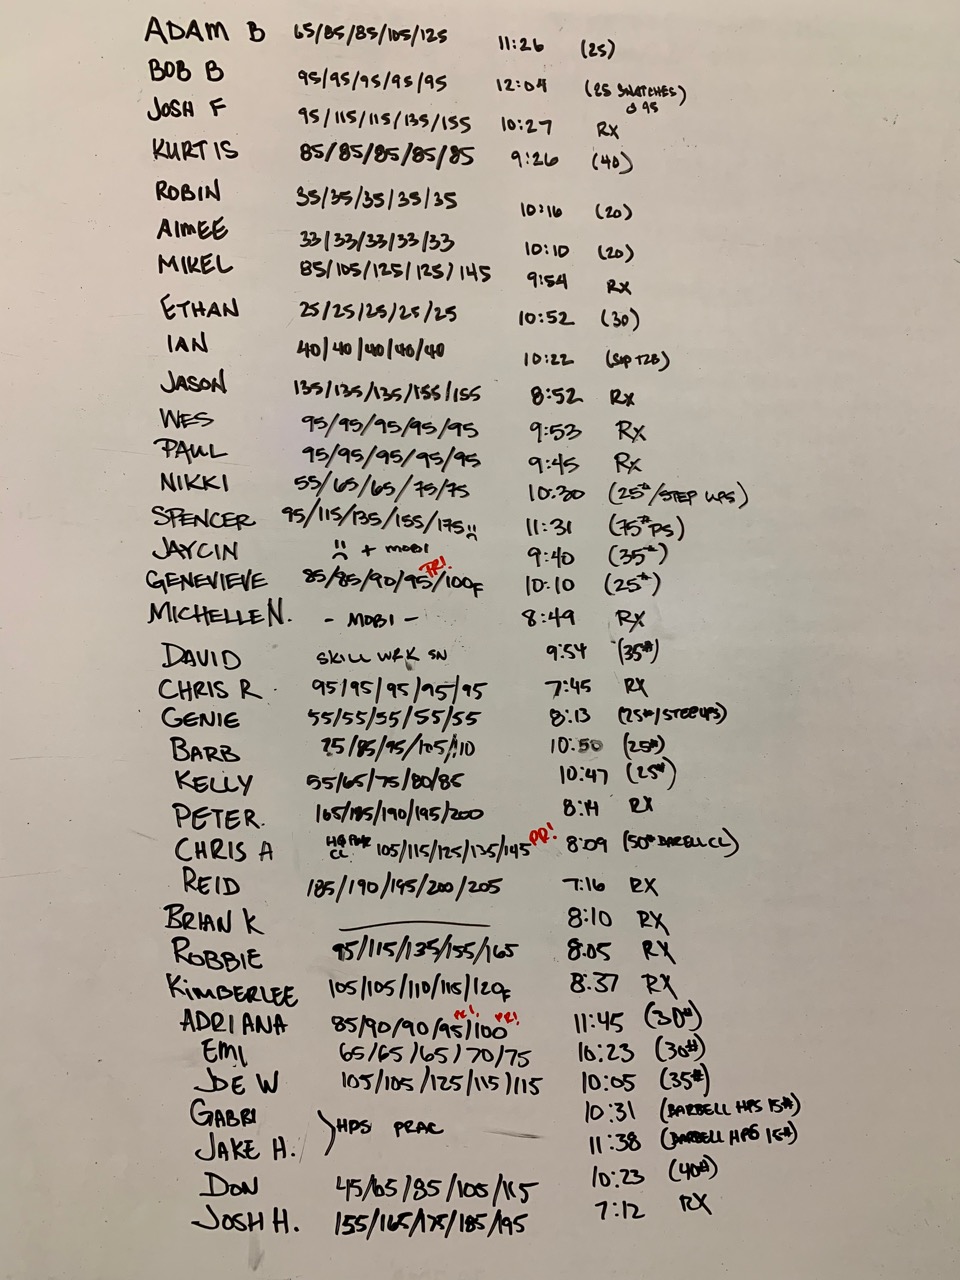 ADAM B 65/85/85/105/125 11:26 (25)
BOB B 95/95/95/95/95 12:04 (25 SNATCHES) @ 95
JOSH F 95/115/115/135/155 10:27 RX
KURTIS 85/85/85/85/85 9:26 (40)
ROBIN 35/35/35/35/35 10:16 (20)
AIMEE 33/33/33/33/33 10:10 (20)
MIKEL 85/105/125/125/145 9:54 RX
ETHAN 25/25/25/25/25 10:52 (30)
IAN 40/40/40/40/40 10:22 (SUP T2B)
JASON 135/135/135/155/155 8:52 RX
WES 95/95/95/95/95 9:53 RX
PAUL 95/95/95/95/95 9:45 RX
NIKKI 55/65/65/75/75 10:30 (25#/STEP UPS)
SPENCER 95/115/135/155/175 11:31 (75# PS)
JAYCIN + MOBI 9:40 (35#)
GENEVIEVE 85/85/90/95 PR!/100F 10:10 (25#)
MICHELLE N. - MOBI - 8:49 RX
DAVID SKILL WRK SN 9:54 (35#)
CHRIS R 95/95/95/95/95 7:45 RX
GENIE 55/55/55/55/55 8:13 (25#/STEP UPS)
BARB 85/95/105/110 10:50 (25#)
KELLY 55/65/75/80/85 10:47 (25#)
PETER. 165/185/190/195/200 8:14 RX
CHRIS A CL. 105/115/125/135/145 PR! 8:09 (50# BARELL CL)
REID 185/190/195/200/205 7:16 RX
BRIAN K 8:10 RX
ROBBIE 95/115/135/155/165 8:05 RX
KIMBERLEE 105/105/110/115/120F 8:37 RX
ADRIANA 85/90/90/95 PR!/100 PR! 11:45 (30#)
EMI 65/65/65/70/75 10:23 (30#)
JOE W 105/105/125/115/115 10:05 (35#)
GABRI 10:31 (BARBELL HPS 15#)
HPS PRAC
JAKE H. 11:38 (BARBELL HPS 15#)
DON 45/65/85/105/115 10:23 (40#)
JOSH H. 155/165/175/185/195 7:12 RX